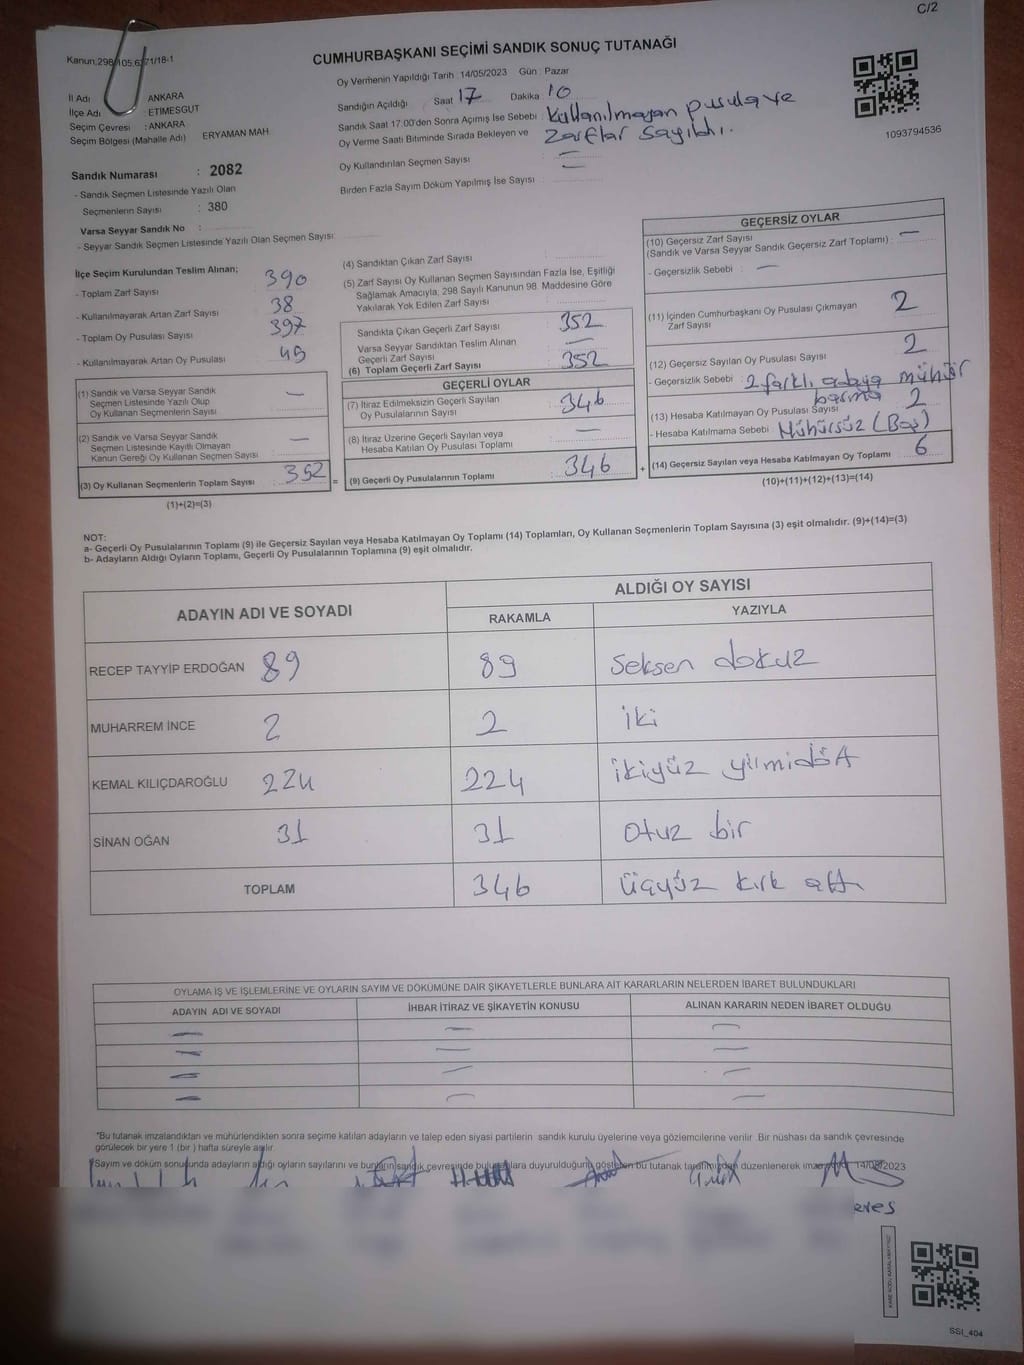 C/2
Kanun;298/105,6271/18-1
CUMHURBAŞKANI SEÇİMİ SANDIK SONUÇ TUTANAĞI
Oy Vermenin Yapıldığı Tarih : 14/05/2023 Gün : Pazar
İl Adı : ANKARA
İlçe Adı : ETİMESGUT
Seçim Çevresi : ANKARA
Seçim Bölgesi (Mahalle Adı) ERYAMAN MAH
Sandığın Açıldığı Saat 17 Dakika 10
Sandık Saat 17:00'den Sonra Açımış İse Sebebi : Kullanılmayan pusula ve
Oy Verme Saati Bitiminde Sırada Bekleyen ve zarflar sayıldı.
Oy Kullandırılan Seçmen Sayısı : —
Birden Fazla Sayım Döküm Yapılmış İse Sayısı : —
1093794536
Sandık Numarası : 2082
- Sandık Seçmen Listesinde Yazılı Olan
Seçmenlerin Sayısı : 380
Varsa Seyyar Sandık No :
- Seyyar Sandık Seçmen Listesinde Yazılı Olan Seçmen Sayısı
İlçe Seçim Kurulundan Teslim Alınan;
- Toplam Zarf Sayısı 390
- Kullanılmayarak Artan Zarf Sayısı 38
- Toplam Oy Pusulası Sayısı 397
- Kullanılmayarak Artan Oy Pusulası 45
(1) Sandık ve Varsa Seyyar Sandık
Seçmen Listesinde Yazılı Olup
Oy Kullanan Seçmenlerin Sayısı —
(2) Sandık ve Varsa Seyyar Sandık
Seçmen Listesinde Kayıtlı Olmayan
Kanun Gereği Oy Kullanan Seçmen Sayısı —
(3) Oy Kullanan Seçmenlerin Toplam Sayısı 352 =
(1)+(2)=(3)
(4) Sandıktan Çıkan Zarf Sayısı
(5) Zarf Sayısı Oy Kullanan Seçmen Sayısından Fazla İse, Eşitliği
Sağlamak Amacıyla; 298 Sayılı Kanunun 98. Maddesine Göre
Yakılarak Yok Edilen Zarf Sayısı
Sandıkta Çıkan Geçerli Zarf Sayısı 352
Varsa Seyyar Sandıktan Teslim Alınan
Geçerli Zarf Sayısı —
(6) Toplam Geçerli Zarf Sayısı 352
GEÇERLİ OYLAR
(7) İtiraz Edilmeksizin Geçerli Sayılan
Oy Pusulalarının Sayısı 346
(8) İtiraz Üzerine Geçerli Sayılan veya
Hesaba Katılan Oy Pusulası Toplamı —
(9) Geçerli Oy Pusulalarının Toplamı 346 +
GEÇERSİZ OYLAR
(10) Geçersiz Zarf Sayısı
(Sandık ve Varsa Seyyar Sandık Geçersiz Zarf Toplamı) : —
- Geçersizlik Sebebi : —
(11) İçinden Cumhurbaşkanı Oy Pusulası Çıkmayan
Zarf Sayısı 2
(12) Geçersiz Sayılan Oy Pusulası Sayısı 2
- Geçersizlik Sebebi : 2 farklı adaya mühür
basma
(13) Hesaba Katılmayan Oy Pusulası Sayısı 2
- Hesaba Katılmama Sebebi : Mühürsüz (Boş)
(14) Geçersiz Sayılan veya Hesaba Katılmayan Oy Toplamı 6
(10)+(11)+(12)+(13)=(14)
NOT:
a- Geçerli Oy Pusulalarının Toplamı (9) ile Geçersiz Sayılan veya Hesaba Katılmayan Oy Toplamı (14) Toplamları, Oy Kullanan Seçmenlerin Toplam Sayısına (3) eşit olmalıdır. (9)+(14)=(3)
b- Adayların Aldığı Oyların Toplamı, Geçerli Oy Pusulalarının Toplamına (9) eşit olmalıdır.
ADAYIN ADI VE SOYADI
ALDIĞI OY SAYISI
RAKAMLA YAZIYLA
RECEP TAYYİP ERDOĞAN 89 89 Seksen dokuz
MUHARREM İNCE 2 2 iki
KEMAL KILIÇDAROĞLU 224 224 ikiyüz yirmidört
SİNAN OĞAN 31 31 Otuz bir
TOPLAM 346 Üçyüz kırk altı
OYLAMA İŞ VE İŞLEMLERİNE VE OYLARIN SAYIM VE DÖKÜMÜNE DAİR ŞİKAYETLERLE BUNLARA AİT KARARLARIN NELERDEN İBARET BULUNDUKLARI
ADAYIN ADI VE SOYADI İHBAR İTİRAZ VE ŞİKAYETİN KONUSU ALINAN KARARIN NEDEN İBARET OLDUĞU
— — —
— — —
— — —
— — —
*Bu tutanak imzalandıktan ve mühürlendikten sonra seçime katılan adayların ve talep eden siyasi partilerin sandık kurulu üyelerine veya gözlemcilerine verilir. Bir nüshası da sandık çevresinde
görülecek bir yere 1 (bir ) hafta süreyle asılır.
*Sayım ve döküm sonucunda adayların aldığı oyların sayılarını ve bunların sandık çevresinde bulunanlara duyurulduğunu gösteren bu tutanak tarafımızdan düzenlenerek 14/05/2023
SSI_404